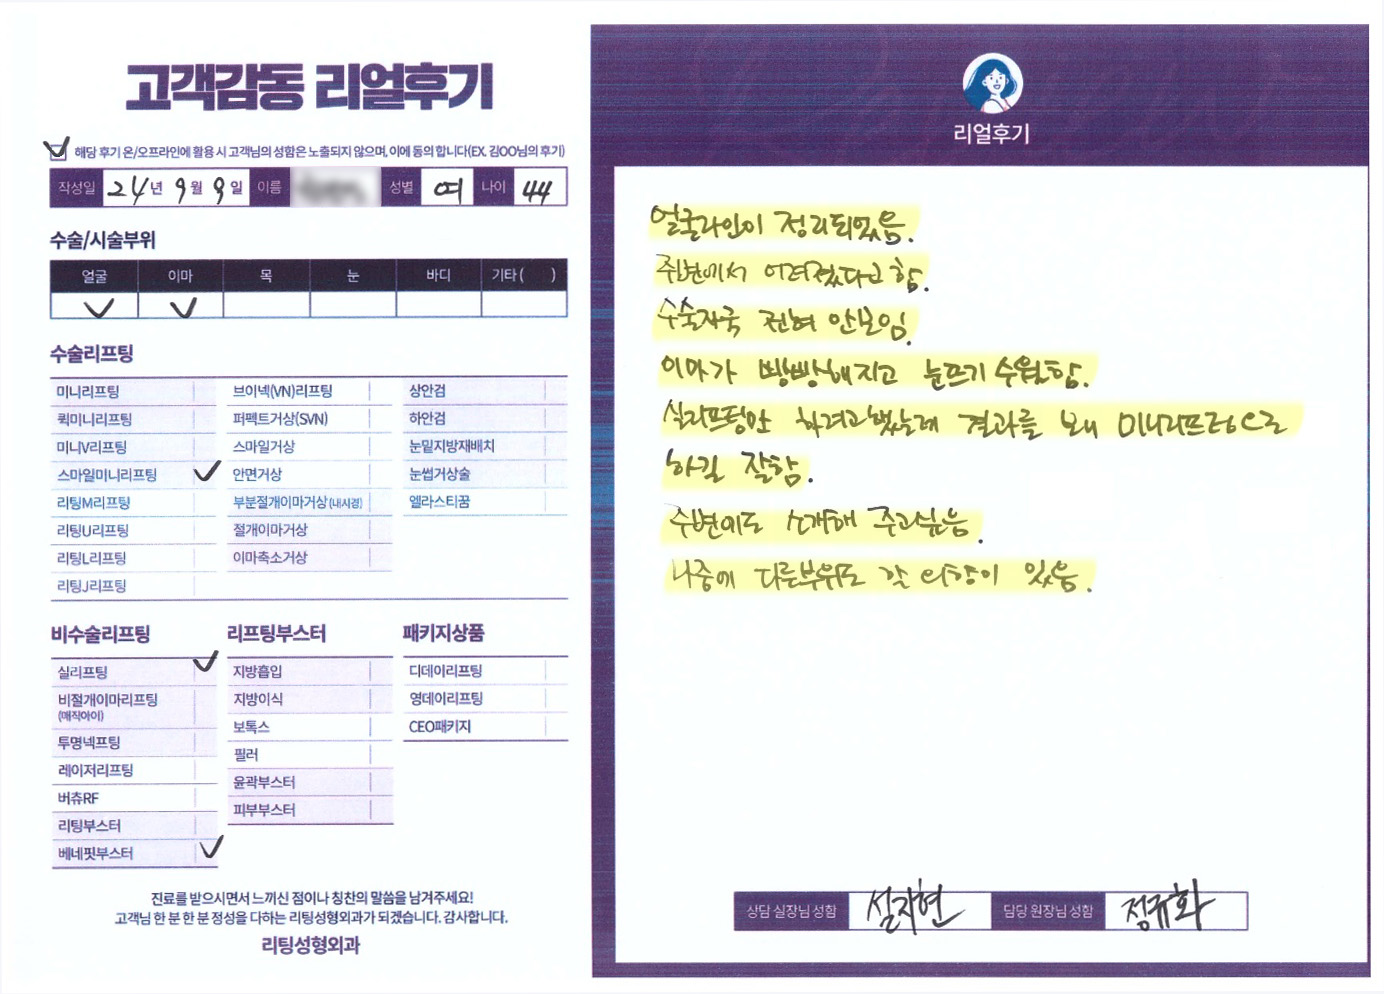 고객감동 리얼후기
해당 후기 온/오프라인에 활용 시 고객님의 성함은 노출되지 않으며, 이에 동의 합니다(EX. 김OO님의 후기)
작성일 24년 9월 9일 이름 성별 여 나이 44
수술/시술부위
얼굴 이마 목 눈 바디 기타( )
수술리프팅
미니리프팅 브이넥(VN)리프팅 상안검
퀵미니리프팅 퍼펙트거상(SVN) 하안검
미니V리프팅 스마일거상 눈밑지방재배치
스마일미니리프팅 안면거상 눈썹거상술
리팅M리프팅 부분절개이마거상(내시경) 엘라스티꿈
리팅U리프팅 절개이마거상
리팅L리프팅 이마축소거상
리팅J리프팅
비수술리프팅 리프팅부스터 패키지상품
실리프팅 지방흡입 디데이리프팅
비절개이마리프팅 지방이식 영데이리프팅
(매직아이) 보톡스 CEO패키지
투명넥프팅 필러
레이저리프팅 윤곽부스터
버츄RF 피부부스터
리팅부스터
베네핏부스터
진료를 받으시면서 느끼신 점이나 칭찬의 말씀을 남겨주세요!
고객님 한 분 한 분 정성을 다하는 리팅성형외과가 되겠습니다. 감사합니다.
리팅성형외과
리얼후기
얼굴라인이 정리되었음.
주변에서 어려졌다고 함.
수술자국 전혀 안보임.
이마가 빵빵해지고 눈뜨기 수월함.
실리프팅만 하려고했는데 결과를 보니 미니리프팅으로
하길 잘함.
주변에도 소개해 주고싶음.
나중에 다른부위도 할 의향이 있음.
상담 실장님 성함 설지현 담당 원장님 성함 정규화